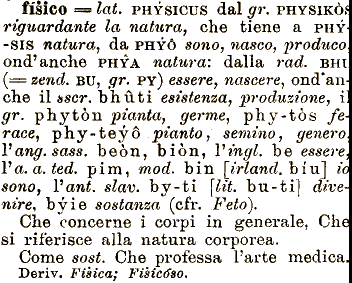 físico = lat. PHÝSICUS dal gr. PHYSIKÒS
riguardante la natura, che tiene a PHÝ-
-SIS natura, da PHÝÔ sono, nasco, produco,
ond'anche PHÝA natura: dalla rad. BHU
(= zend. BU, gr. PY) essere, nascere, ond'an-
che il sscr. bhûti esistenza, produzione, il
gr. phytòn pianta, germe, phy-tòs fe-
race, phy-teýô pianto, semino, genero,
l'ang. sass. beòn, biòn, l'ingl. be essere,
l'a. a. ted. pim, mod. bin [irland. bíu] io
sono, l'ant. slav. by-ti [lit. bu-ti] dive-
nire, býie sostanza (cfr. Feto).
Che concerne i corpi in generale, Che
si riferisce alla natura corporea.
Come sost. Che professa l'arte medica.
Deriv. Física; Fisicóso.